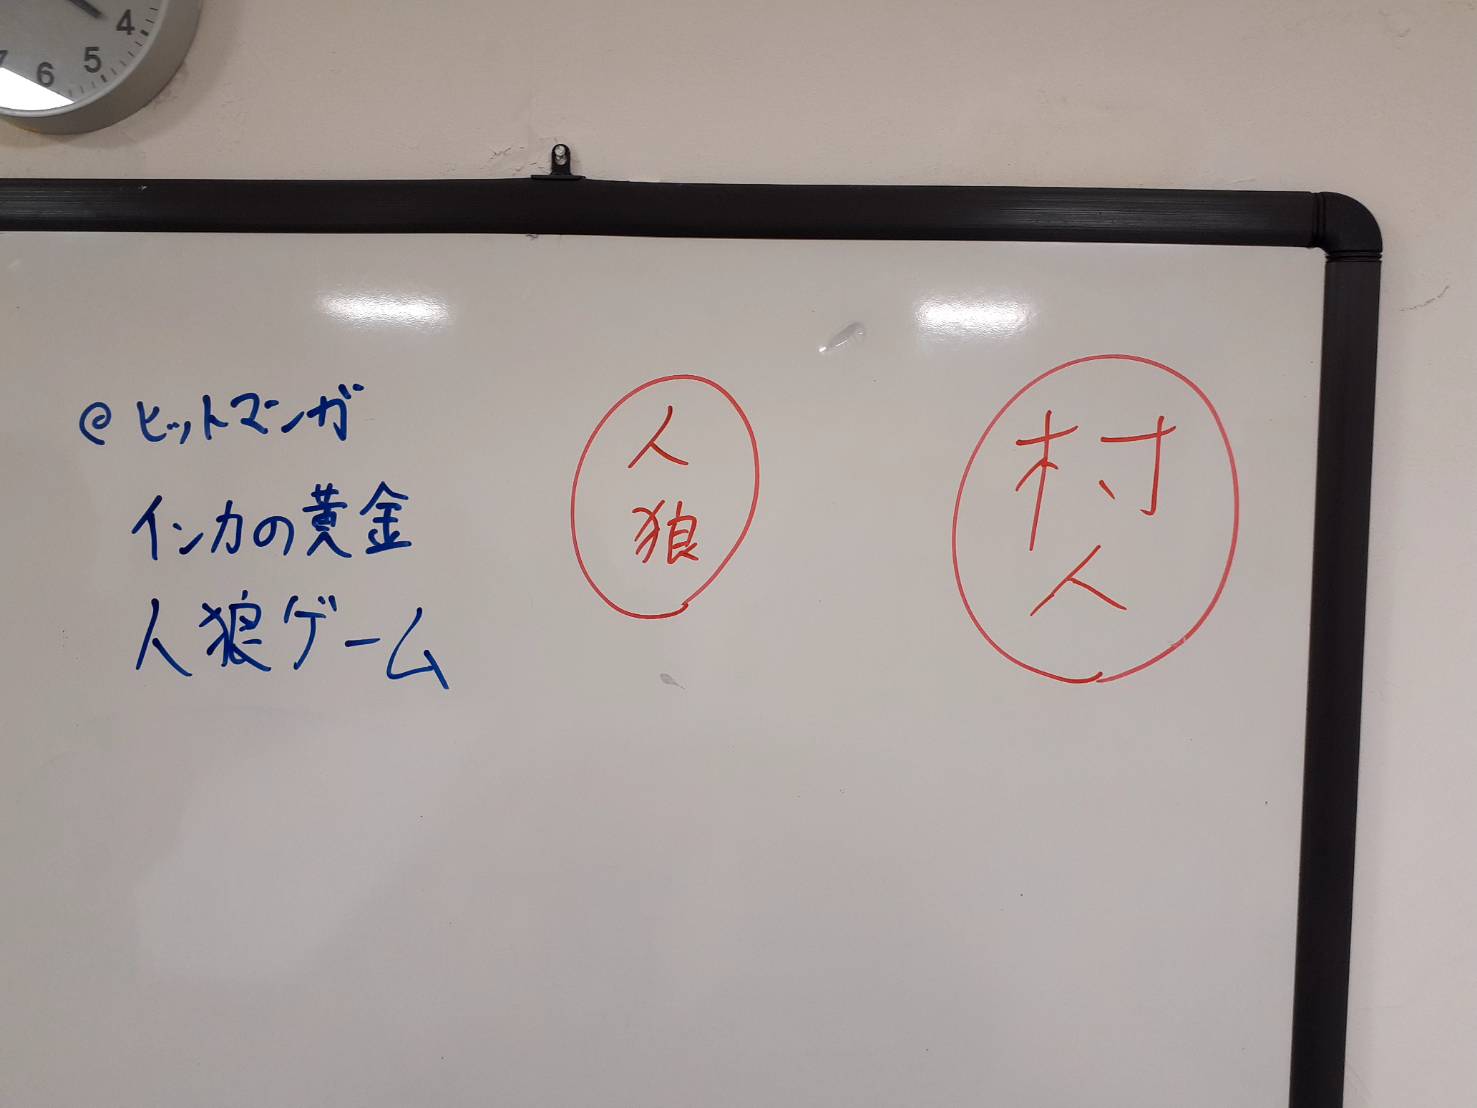 4
5
6
7
@ヒットマンガ
インカの黄金
人狼ゲーム
人狼
村人